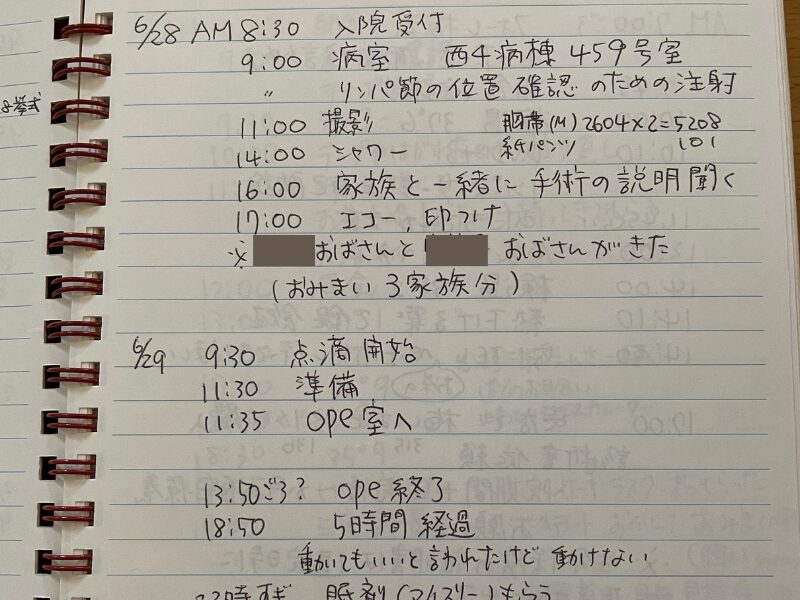 6/28 AM 8:30 入院受付
9:00 病室 西4病棟 459号室
〃 リンパ節の位置確認のための注射
11:00 撮影 胴帯(M) 2604×2=5208
14:00 シャワー 紙パンツ 101
16:00 家族と一緒に手術の説明聞く
17:00 エコー、印つけ
※ おばさんと おばさんがきた
(おみまい 3家族分)
6/29 9:30 点滴開始
11:30 準備
11:35 ope室へ
13:50ごろ? ope終了
18:50 5時間経過
動いてもいいと言われたけど動けない
時すぎ 眠剤(マイスリー)もらう